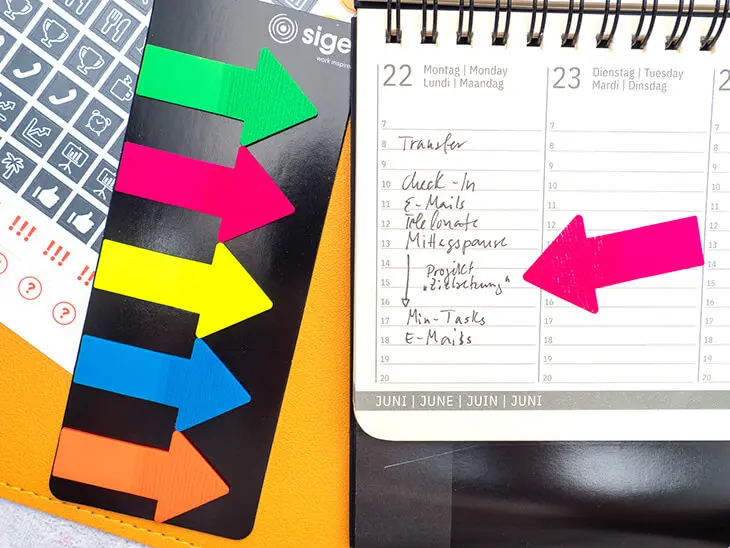 sige
work inspire
22
Montag | Monday
Lundi | Maandag
7
8 Transfer
9
10 Check-In
11 E-Mails
12 Telefonate
13 Mittagspause
14 Projekt
15 „Zielsetzung“
16
17 Min-Tasks
18 E-Mails
19
20
23
Dienstag | Tuesday
Mardi | Dinsdag
7
8
9
10
11
12
13
15
16
17
18
19
20
2
JUNI | JUNE | JUIN | JUNI
!!! !!! !!!
? ? ?